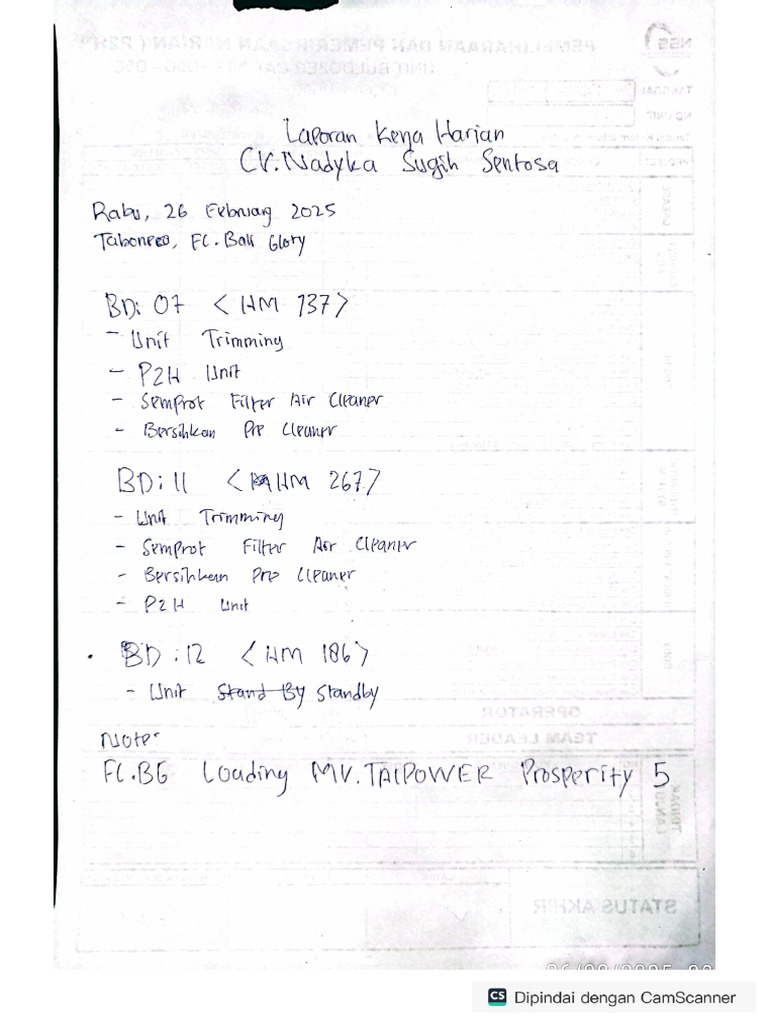 Laporan Kerja Harian
CV. Nadyka Sugih Sentosa
Rabu, 26 Februari 2025
Taboneo, FC. Bali Glory
BD: 07 <HM 137>
- Unit Trimming
- P2H Unit
- Semprot Filter Air Cleaner
- Bersihkan Pre Cleaner
BD: 11 <HM 267>
- Unit Trimming
- Semprot Filter Air Cleaner
- Bersihkan Pre Cleaner
- P2H Unit
BD: 12 <HM 186>
- Unit Stand By Standby
Note:
FC.BG Loading MV. TAIPOWER Prosperity 5
OPERATOR
TEAM LEADER
STATUS AKHIR
CS Dipindai dengan CamScanner